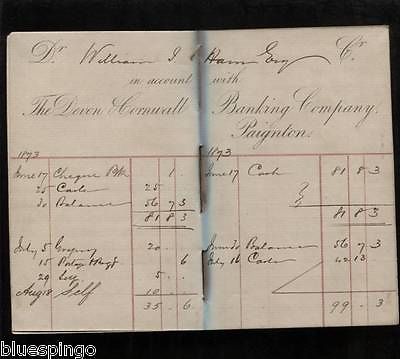 Dr William J Ham Esq Cr
in account with
The Devon & Cornwall Banking Company,
Paignton.
1873
June 17 Cheque Bk 1 .
25 Cash 25
30 Balance 56 7 3
81 8 3
July 5 20 ..
15 6
29 Self 5 ..
Aug 18 Self 10 ..
35 . 6
1873
June 17 Cash 81 8 3
81 8 3
June 30 Balance 56 7 3
July 16 Cash 42 13
99 . 3
© bluespingo